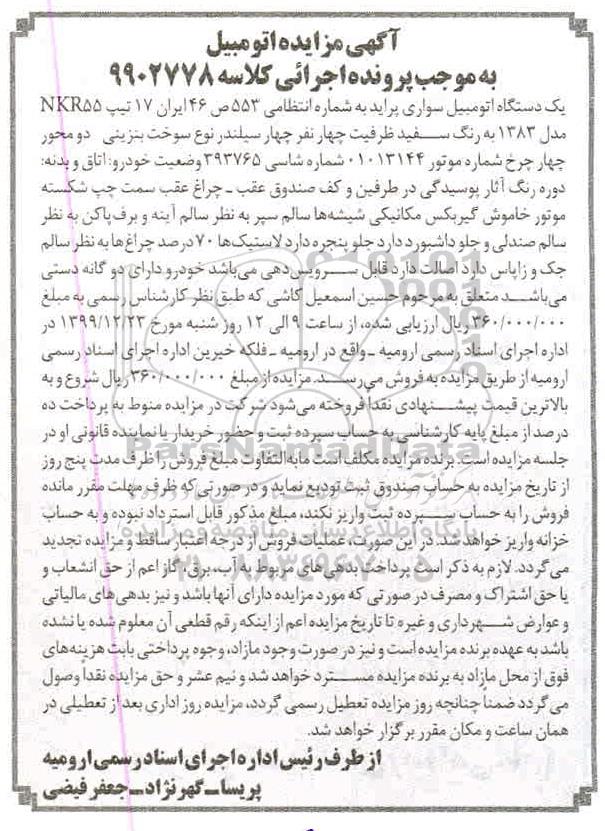 آگهی مزایده اتومبیل
به موجب پرونده اجرائی کلاسه ۹۹۰۲۷۷۸
یک دستگاه اتومبیل سواری پراید به شماره انتظامی ۵۵۳ ص ۴۶ ایران ۱۷ تیپ NKR۵۵
مدل ۱۳۸۳ به رنگ سفید ظرفیت چهار نفر چهار سیلندر نوع سوخت بنزینی دو محور
چهار چرخ شماره موتور ۰۱۰۱۳۱۴۴ شماره شاسی ۳۹۳۷۶۵ وضعیت خودرو: اتاق و بدنه:
دوره رنگ آثار پوسیدگی در طرفین و کف صندوق عقب ـ چراغ عقب سمت چپ شکسته
موتور خاموش گیربکس مکانیکی شیشه‌ها سالم سپر به نظر سالم آینه و برف‌پاکن به نظر
سالم صندلی و جلو داشبورد دارد جلو پنجره دارد لاستیک‌ها ۷۰ درصد چراغ‌ها به نظر سالم
جک و زاپاس دارد اصالت دارد قابل سرویس‌دهی می‌باشد خودرو دارای دو گانه دستی
می‌باشد متعلق به مرحوم حسین اسمعیل کاشی که طبق نظر کارشناس رسمی به مبلغ
۳۶۰/۰۰۰/۰۰۰ ریال ارزیابی شده، از ساعت ۹ الی ۱۲ روز شنبه مورخ ۱۳۹۹/۱۲/۲۳ در
اداره اجرای اسناد رسمی ارومیه ـ واقع در ارومیه ـ فلکه خیرین اداره اجرای اسناد رسمی
ارومیه از طریق مزایده به فروش می‌رسد. مزایده از مبلغ ۳۶۰/۰۰۰/۰۰۰ ریال شروع و به
بالاترین قیمت پیشنهادی نقداً فروخته می‌شود شرکت در مزایده منوط به پرداخت ده
درصد از مبلغ پایه کارشناسی به حساب سپرده ثبت و حضور خریدار یا نماینده قانونی او در
جلسه مزایده است. برنده مزایده مکلف است مابه‌التفاوت مبلغ فروش را ظرف مدت پنج روز
از تاریخ مزایده به حساب صندوق ثبت تودیع نماید و در صورتی که ظرف مهلت مقرر مانده
فروش را به حساب سپرده ثبت واریز نکند، مبلغ مذکور قابل استرداد نبوده و به حساب
خزانه واریز خواهد شد. در این صورت، عملیات فروش از درجه اعتبار ساقط و مزایده تجدید
می‌گردد. لازم به ذکر است پرداخت بدهی‌های مربوط به آب، برق، گاز اعم از حق انشعاب و
یا حق اشتراک و مصرف در صورتی که مورد مزایده دارای آنها باشد و نیز بدهی‌های مالیاتی
و عوارض شهرداری و غیره تا تاریخ مزایده اعم از اینکه رقم قطعی آن معلوم شده یا نشده
باشد به عهده برنده مزایده است و نیز در صورت وجود مازاد، وجوه پرداختی بابت هزینه‌های
فوق از محل مازاد به برنده مزایده مسترد خواهد شد و نیم عشر و حق مزایده نقداً وصول
می‌گردد ضمناً چنانچه روز مزایده تعطیل رسمی گردد، مزایده روز اداری بعد از تعطیلی در
همان ساعت و مکان مقرر برگزار خواهد شد.
از طرف رئیس اداره اجرای اسناد رسمی ارومیه
پریسا ـ گهرنژاد ـ جعفر فیضی
ParsNamadData
پایگاه اطلاع رسانی مناقصه و مزایده